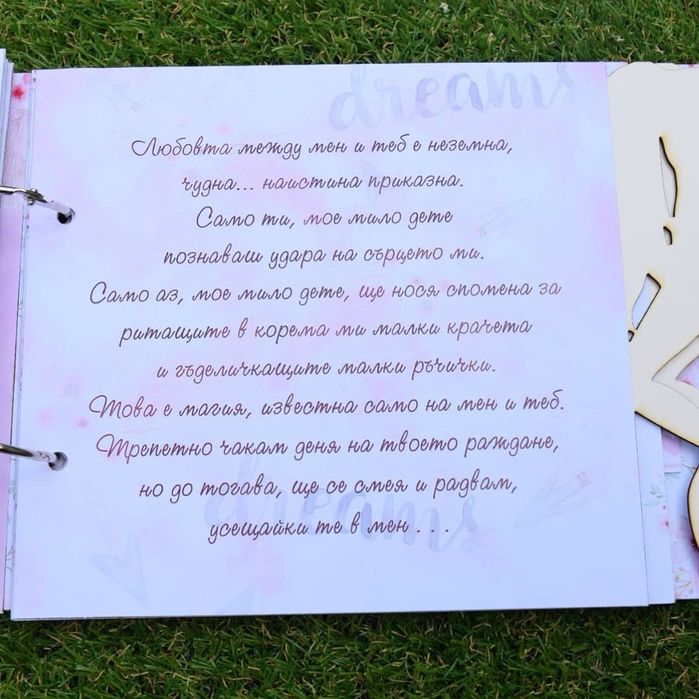 dreams
Любовта между мен и теб е неземна,
чудна... наистина приказна.
Само ти, мое мило дете
познаваш удара на сърцето ми.
Само аз, мое мило дете, ще нося спомена за
ритащите в корема ми малки крачета
и гъделичкащите малки ръчички.
Това е магия, известна само на мен и теб.
Трепетно чакам деня на твоето раждане,
но до тогава, ще се смея и радвам,
dreams
усещайки те в мен . . .